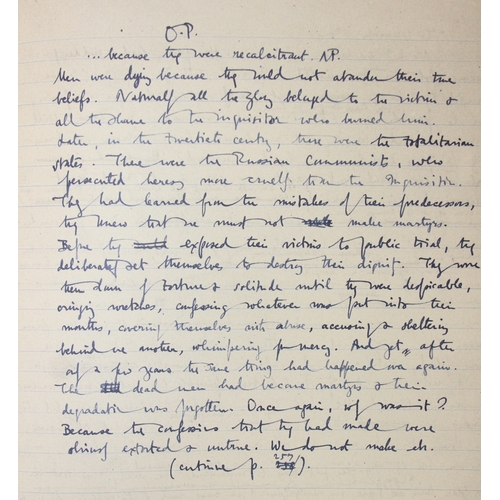 O.P.
...because they were recalcitrant. NP.
Men were dying because they would not abandon their true
beliefs. Naturally all the glory belonged to the victim &
all the shame to the Inquisitor who burned him.
Later, in the twentieth century, there were the totalitarian
states. There were the Russian Communists, who
persecuted heresy more cruelly than the Inquisition.
They had learned from the mistakes of their predecessors,
they knew that we must not make martyrs.
Before they exposed their victims to public trial, they
deliberately set themselves to destroy their dignity. They wore
them down by torture & solitude until they were despicable,
cringing wretches, confessing whatever was put into their
mouths, covering themselves with abuse, accusing & sheltering
behind one another, whimpering for mercy. And yet, after
only a few years the same thing had happened over again.
The dead men had become martyrs & their
degradation was forgotten. Once again, why was it?
Because the confessions that they had made were
obviously extorted & untrue. We do not make etc.
(continue p. 257).